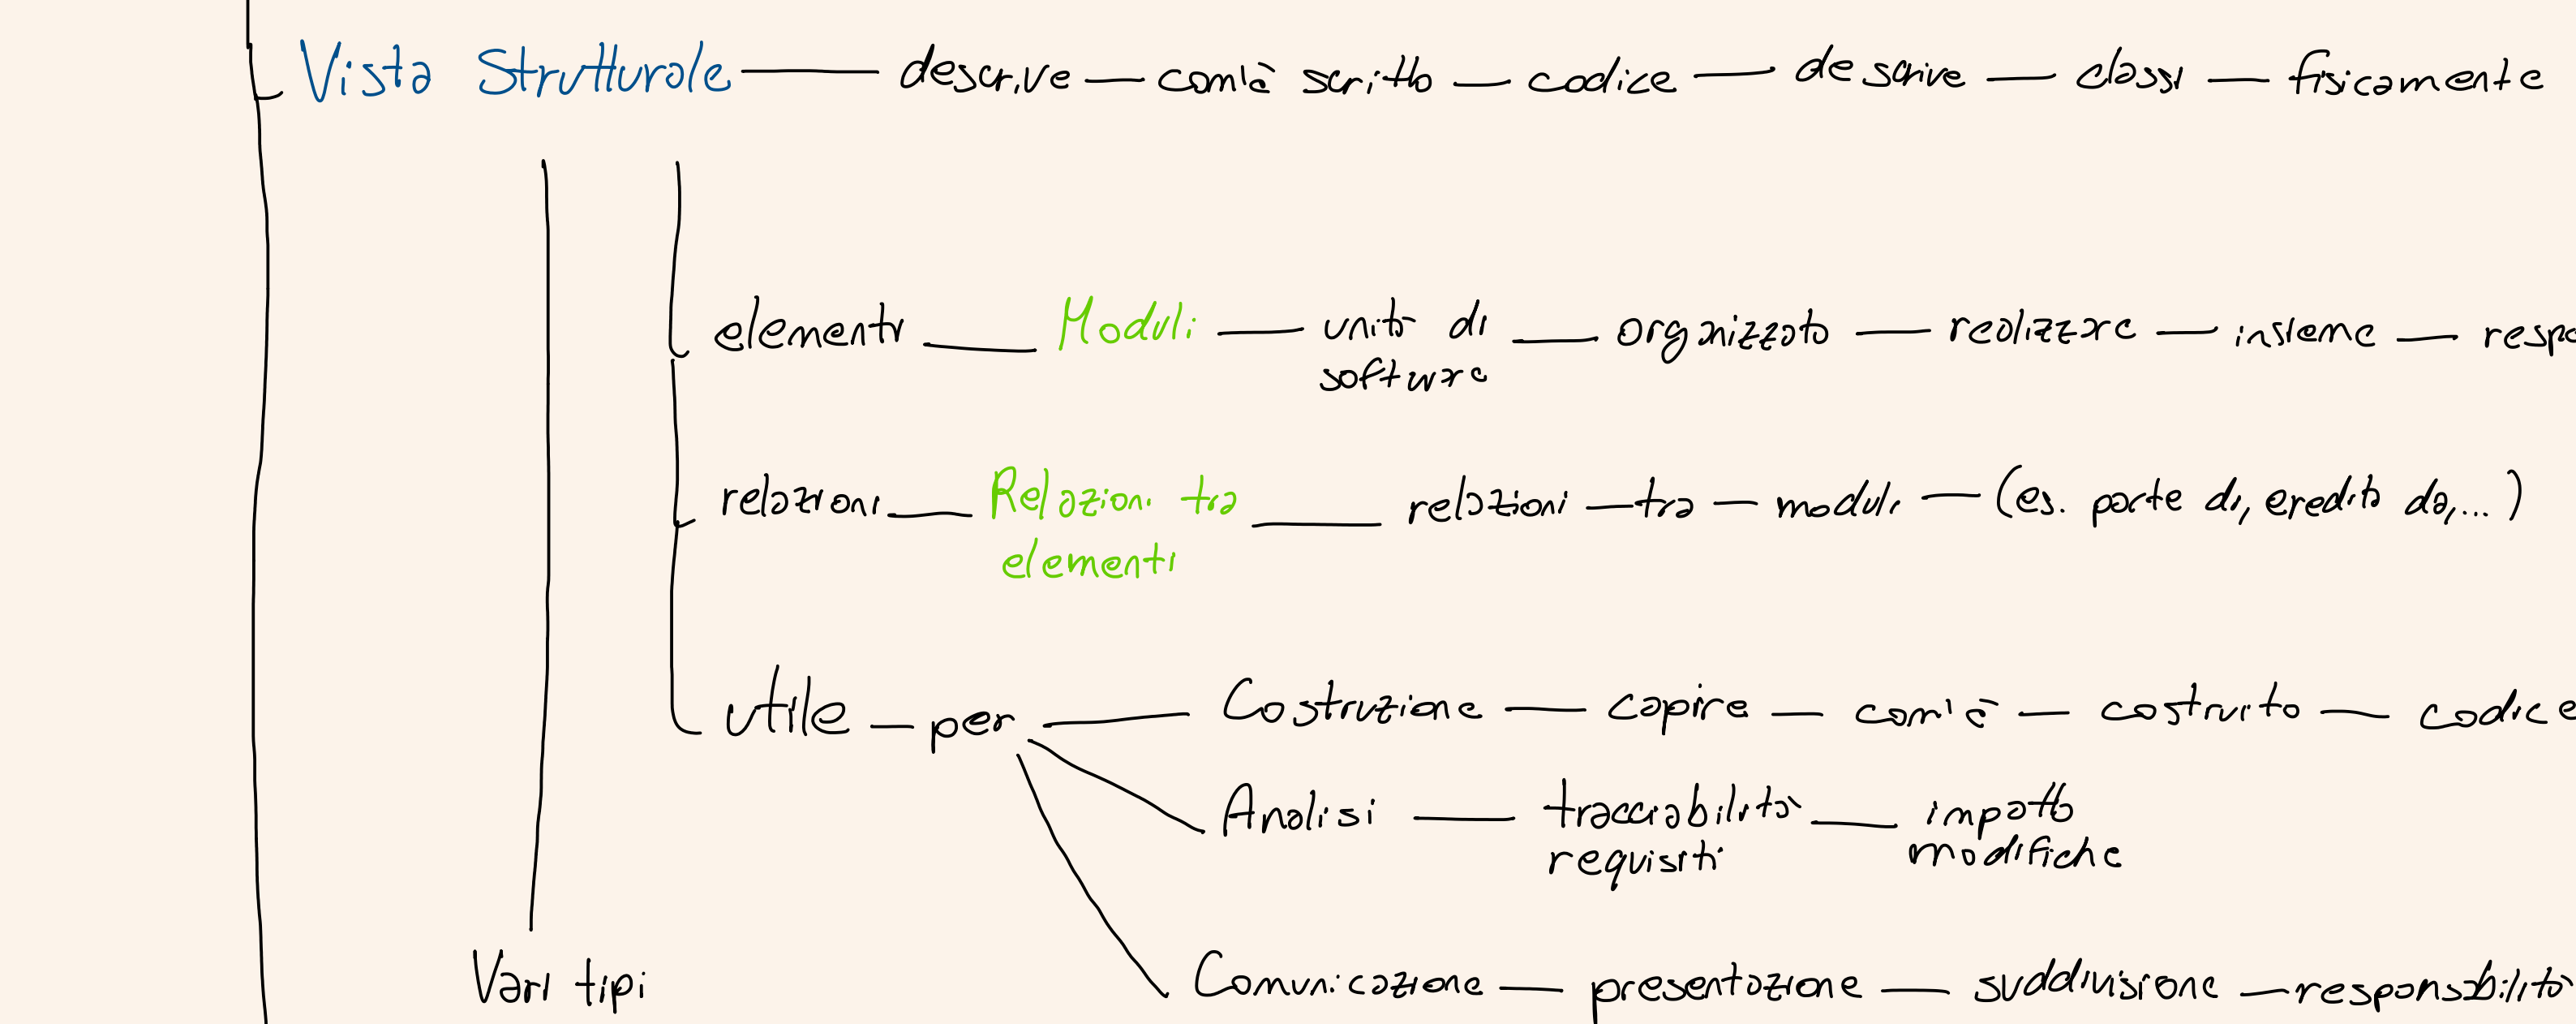 Vista Strutturale — descrive — com'è scritto — codice — descrive — classi — fisicamente
elementi — Moduli — unità di software — organizzato — realizzare — insieme — respo
relazioni — Relazioni tra elementi — relazioni — tra — moduli — (es. parte di, eredita da,...)
utile — per — Costruzione — capire — com'è — costruito — codice
Analisi — tracciabilità requisiti — impatto modifiche
Vari tipi
Comunicazione — presentazione — suddivisione — responsabilità